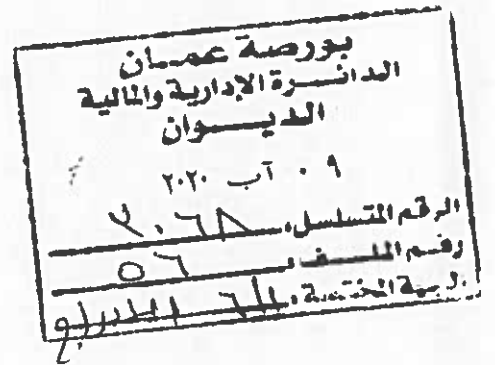 بورصة عمان
الدائرة الإدارية والمالية
الديوان
٠٩ آب ٢٠٢٠
الرقم المتسلسل:
رقم الملف: ٥٦
الجهة المختصة: